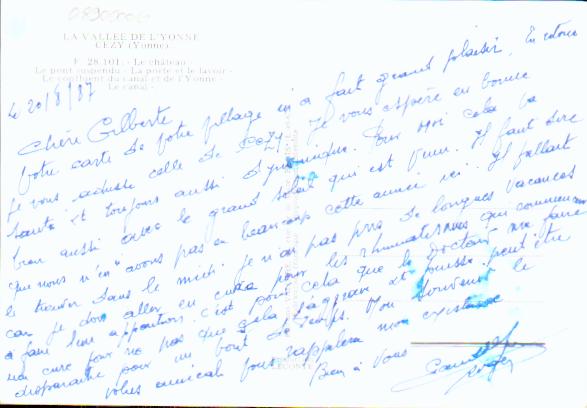 08900000
LA VALLEE DE L'YONNE
CEZY (Yonne)
F. 28.101 : - Le château -
Le pont suspendu - La poste et le lavoir -
Le confluent du canal et de l'Yonne -
Le canal -
Le 20/8/87
Chère Gilberte
Votre carte de votre village m'a fait grand plaisir. En retour
je vous adresse celle de CEZY. Je vous espère en bonne
santé et toujours aussi dynamique. Pour moi cela va
bien aussi avec le grand soleil qui est venu. Il faut dire
que nous n'en avons pas eu beaucoup cette année ici. Il fallait
le trouver dans le midi. Je n'ai pas pris de longues vacances
car je dois aller en cure pour les rhumatismes qui commencent
à faire leur apparition. c'est pour cela que le Docteur me fait faire
une cure pour ne pas que cela s'aggrave et puisse peut être
disparaître pour un bout de temps. Mon souvenir le
plus amical vous rappelera mon existence
Bien à vous
Roger